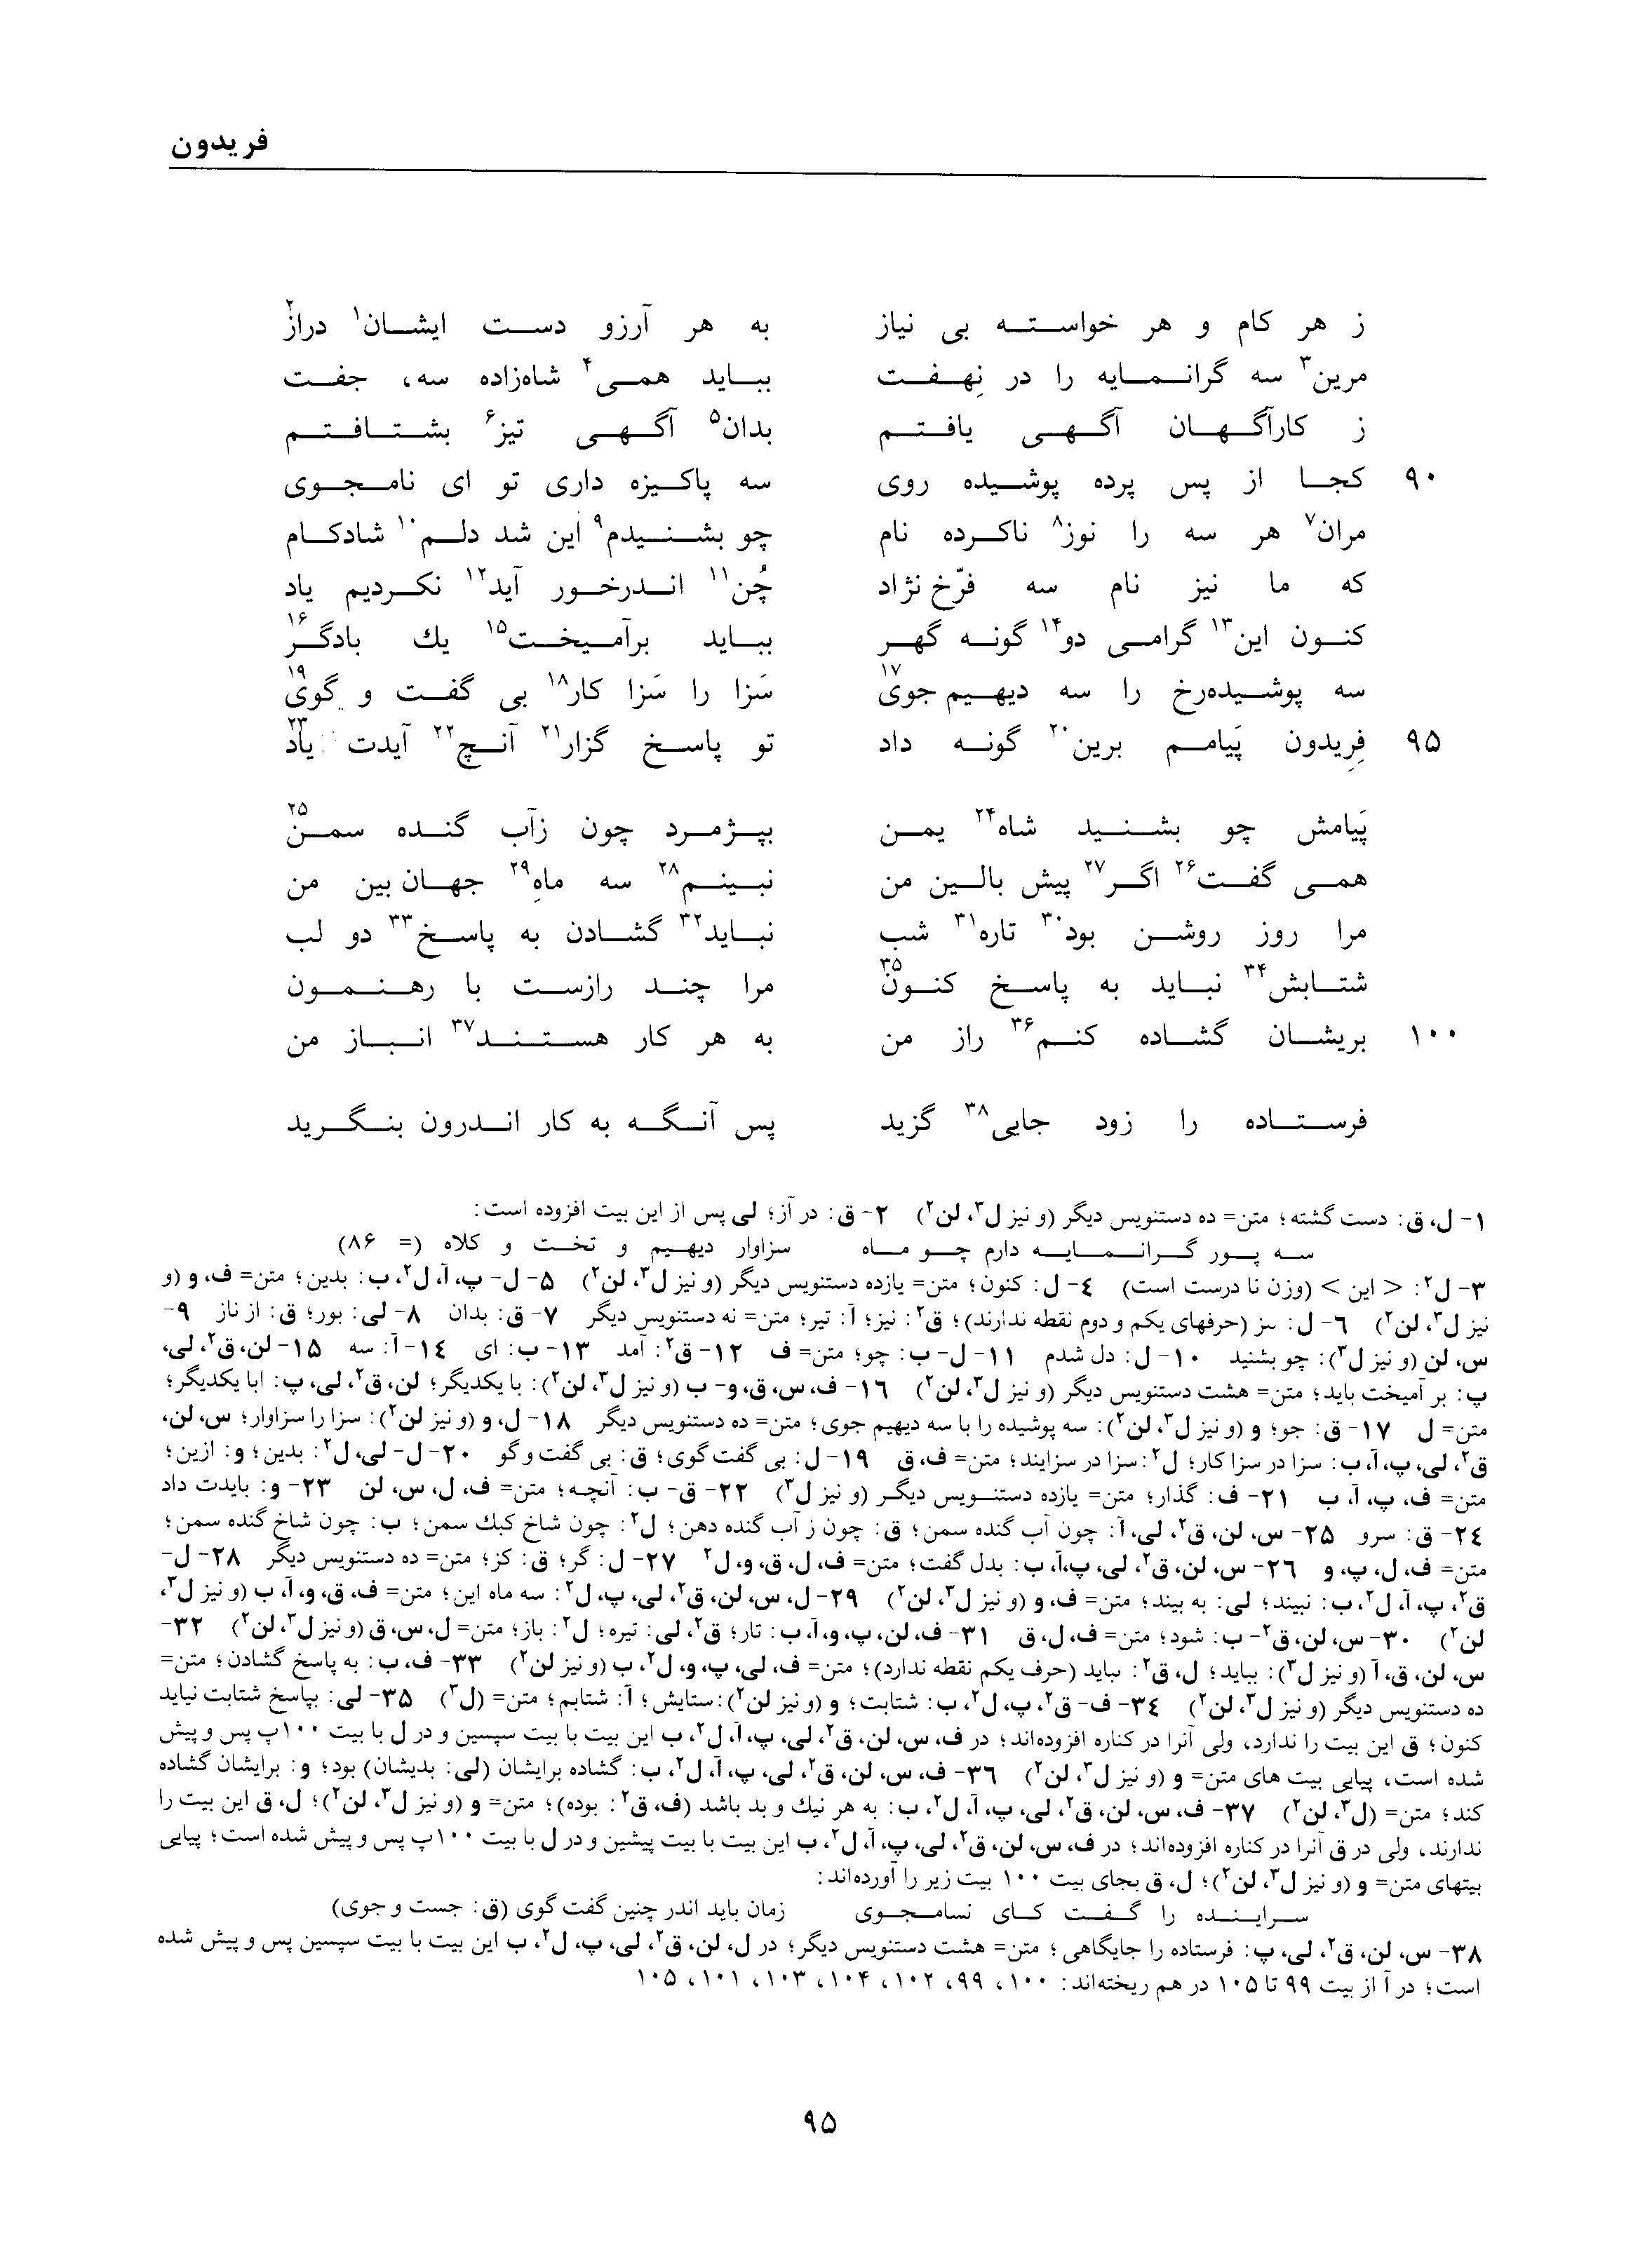 فریدون
ز هر کام و هر خواسته بی نیاز    به هر آرزو دست ایشان۱ دراز۲
مرین۳ سه گرانمایه را در نِهفت    بباید همی۴ شاه‌زاده سه، جفت
ز کارآگهان آگهی یافتم    بدان۵ آگهی تیز۶ بشتافتم
۹۰ کجا از پس پرده پوشیده روی    سه پاکیزه داری تو ای نامجوی
مران۷ هر سه را نوز۸ ناکرده نام    چو بشنیدم۹ این شد دلم۱۰ شادکام
که ما نیز نام سه فرّخ نژاد    چُن۱۱ اندرخور آید۱۲ نکردیم یاد
کنون این۱۳ گرامی دو۱۴ گونه گهر    بباید برآمیخت۱۵ یك بادگر۱۶
سه پوشیده‌رخ را سه دیهیم جوی۱۷    سَزا را سَزا کار۱۸ بی گفت و گوی۱۹
۹۵ فِریدون پَیامم برین۲۰ گونه داد    تو پاسخ گزار۲۱ آنچ۲۲ آیدت یاد۲۳
پَیامش چو بشنید شاه۲۴ یمن    بپژمرد چون زآب گنده سمن۲۵
همی گفت۲۶ اگر۲۷ پیش بالین من    نبینم۲۸ سه ماهِ۲۹ جهان بین من
مرا روز روشن بود۳۰ تاره۳۱ شب    نباید۳۲ گشادن به پاسخ۳۳ دو لب
شتابش۳۴ نباید به پاسخ کنون۳۵    مرا چند رازست با رهنمون
۱۰۰ بریشان گشاده کنم۳۶ راز من    به هر کار هستند۳۷ انباز من
فرستاده را زود جایی۳۸ گزید    پس آنگه به کار اندرون بنگرید
۱- ل، ق: دست گشته؛ متن= ده دستنویس دیگر (و نیز ل۳، لن۲) ۲- ق: در آز؛ لی پس از این بیت افزوده است:
سه پور گرانمایه دارم چو ماه    سزاوار دیهیم و تخت و کلاه (= ۸۶)
۳- ل۲: < این > (وزن نا درست است) ٤- ل: کنون؛ متن= یازده دستنویس دیگر (و نیز ل۳، لن۲) ۵- ل- پ، آ، ل۲، ب: بدین؛ متن= ف، و (و
نیز ل۳، لن۲) ۶- ل: ىىز (حرفهای یکم و دوم نقطه ندارند)؛ ق۲: نیز؛ آ: تیر؛ متن= نه دستنویس دیگر ۷- ق: بدان ۸- لی: بور؛ ق: از ناز ۹-
س، لن (و نیز ل۳): چو بشنید ۱۰- ل: دل شدم ۱۱- ل- ب: چو؛ متن= ف ۱۲- ق۲: آمد ۱۳- ب: ای ۱٤- آ: سه ۱۵- لن، ق۲، لی،
پ: بر آمیخت باید؛ متن= هشت دستنویس دیگر (و نیز ل۳، لن۲) ۱۶- ف، س، ق، و- ب (و نیز ل۳، لن۲): با یکدیگر؛ لن، ق۲، لی، پ: ابا یکدیگر؛
متن= ل ۱۷- ق: جو؛ و (و نیز ل۳، لن۲): سه پوشیده را با سه دیهیم جوی؛ متن= ده دستنویس دیگر ۱۸- ل، و (و نیز لن۲): سزا را سزاوار؛ س، لن،
ق۲، لی، پ، آ، ب: سزا در سزا کار؛ ل۲: سزا در سزایند؛ متن= ف، ق ۱۹- ل: بی گفت گوی؛ ق: بی گفت و گو ۲۰- ل- لی، ل۲: بدین؛ و: ازین؛
متن= ف، پ، آ، ب ۲۱- ف: گذار؛ متن= یازده دستنویس دیگر (و نیز ل۳) ۲۲- ق- ب: آنچه؛ متن= ف، ل، س، لن ۲۳- و: بایدت داد
۲٤- ق: سرو ۲۵- س، لن، ق۲، لی، آ: چون آب گنده سمن؛ ق: چون ز آب گنده دهن؛ ل۲: چون شاخ کبك سمن؛ ب: چون شاخ گنده سمن؛
متن= ف، ل، پ، و ۲۶- س، لن، ق۲، لی، پ، آ، ب: بدل گفت؛ متن= ف، ل، ق، و، ل۲ ۲۷- ل: گر؛ ق: کز؛ متن= ده دستنویس دیگر ۲۸- ل-
ق۲، پ، آ، ل۲، ب: نبیند؛ لی: به بیند؛ متن= ف، و (و نیز ل۳، لن۲) ۲۹- ل، س، لن، ق۲، لی، پ، ل۲: سه ماه این؛ متن= ف، ق، و، آ، ب (و نیز ل۳،
لن۲) ۳۰- س، لن، ق۲- ب: شود؛ متن= ف، ل، ق ۳۱- ف، لن، پ، و، آ، ب: تار؛ ق۲، لی: تیره؛ ل۲: باز؛ متن= ل، س، ق (و نیز ل۳، لن۲) ۳۲-
س، لن، ق، آ (و نیز ل۳): بباید؛ ل، ق۲: ىباید (حرف یکم نقطه ندارد)؛ متن= ف، لی، پ، و، ل۲، ب (و نیز لن۲) ۳۳- ف، ب: به پاسخ گشادن؛ متن=
ده دستنویس دیگر (و نیز ل۳، لن۲) ۳٤- ف- ق۲، پ، ل۲، ب: شتابت؛ و (و نیز لن۲): ستایش؛ آ: شتابم؛ متن= (ل۳) ۳۵- لی: بپاسخ شتابت نیاید
کنون؛ ق این بیت را ندارد، ولی آنرا در کناره افزوده‌اند؛ در ف، س، لن، ق۲، لی، پ، آ، ل۲، ب این بیت با بیت سپسین و در ل با بیت ۱۰۰پ پس و پیش
شده است، پیایی بیت های متن= و (و نیز ل۳، لن۲) ۳۶- ف، س، لن، ق۲، لی، پ، آ، ل۲، ب: گشاده برایشان (لی: بدیشان) بود؛ و: برایشان گشاده
کند؛ متن= (ل۳، لن۲) ۳۷- ف، س، لن، ق۲، لی، پ، آ، ل۲، ب: به هر نیك و بد باشد (ف، ق۲: بوده)؛ متن= و (و نیز ل۳، لن۲)؛ ل، ق این بیت را
ندارند، ولی در ق آنرا در کناره افزوده‌اند؛ در ف، س، لن، ق۲، لی، پ، آ، ل۲، ب این بیت با بیت پیشین و در ل با بیت ۱۰۰پ پس و پیش شده است؛ پیایی
بیتهای متن= و (و نیز ل۳، لن۲)؛ ل، ق بجای بیت ۱۰۰ بیت زیر را آورده‌اند:
سراینده را گفت کای نامجوی    زمان باید اندر چنین گفت گوی (ق: جست و جوی)
۳۸- س، لن، ق۲، لی، پ: فرستاده را جایگاهی؛ متن= هشت دستنویس دیگر؛ در ل، لن، ق۲، لی، پ، ل۲، ب این بیت با بیت سپسین پس و پیش شده
است؛ در آ از بیت ۹۹ تا ۱۰۵ در هم ریخته‌اند: ۱۰۰، ۹۹، ۱۰۲، ۱۰۴، ۱۰۳، ۱۰۱، ۱۰۵
۹۵